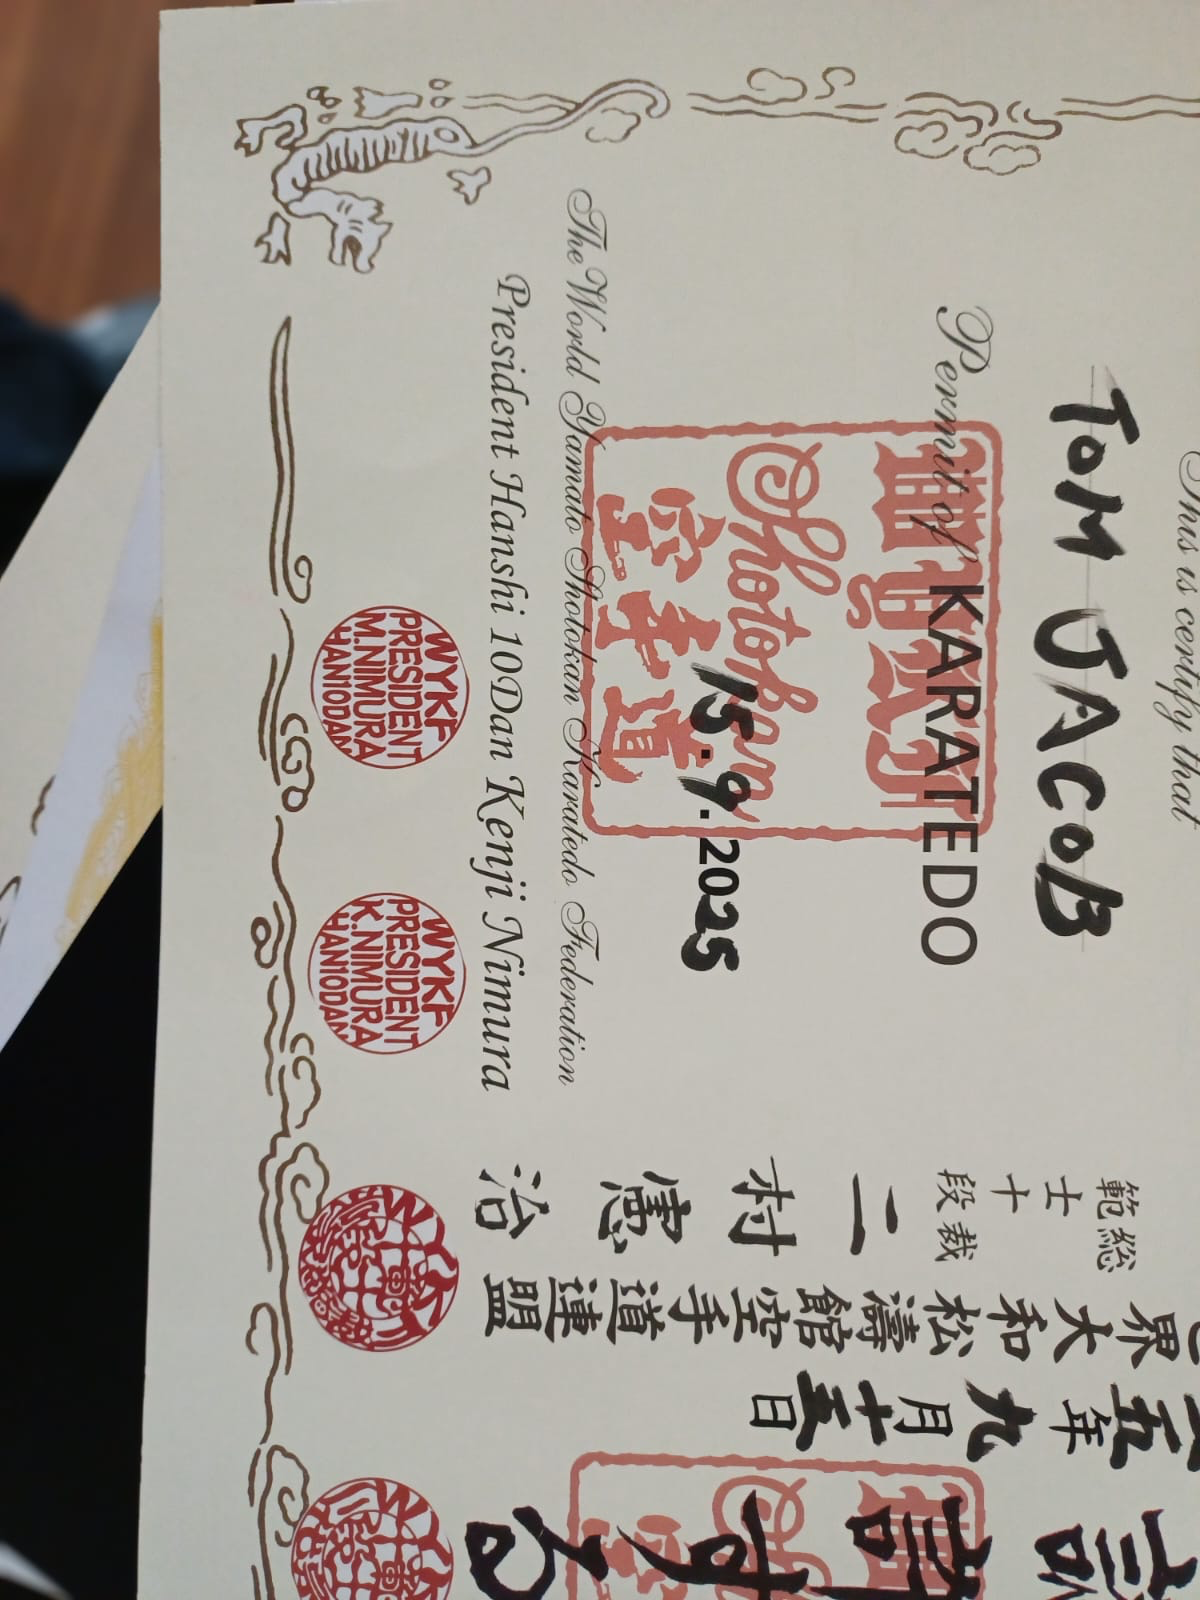 This is certify that
TOM JACOB
Permit of KARATEDO
Shotokan
空手道
15.9.2025
The World Yamato Shotokan Karatedo Federation
President Hanshi 10Dan Kenji Nimura
WYKF
PRESIDENT
M.NIMURA
HAN10DAN
WYKF
PRESIDENT
K.NIMURA
HAN10DAN
許する
五年九月十五日
界大和松濤館空手道連盟
総裁
範士十段
二村憲治